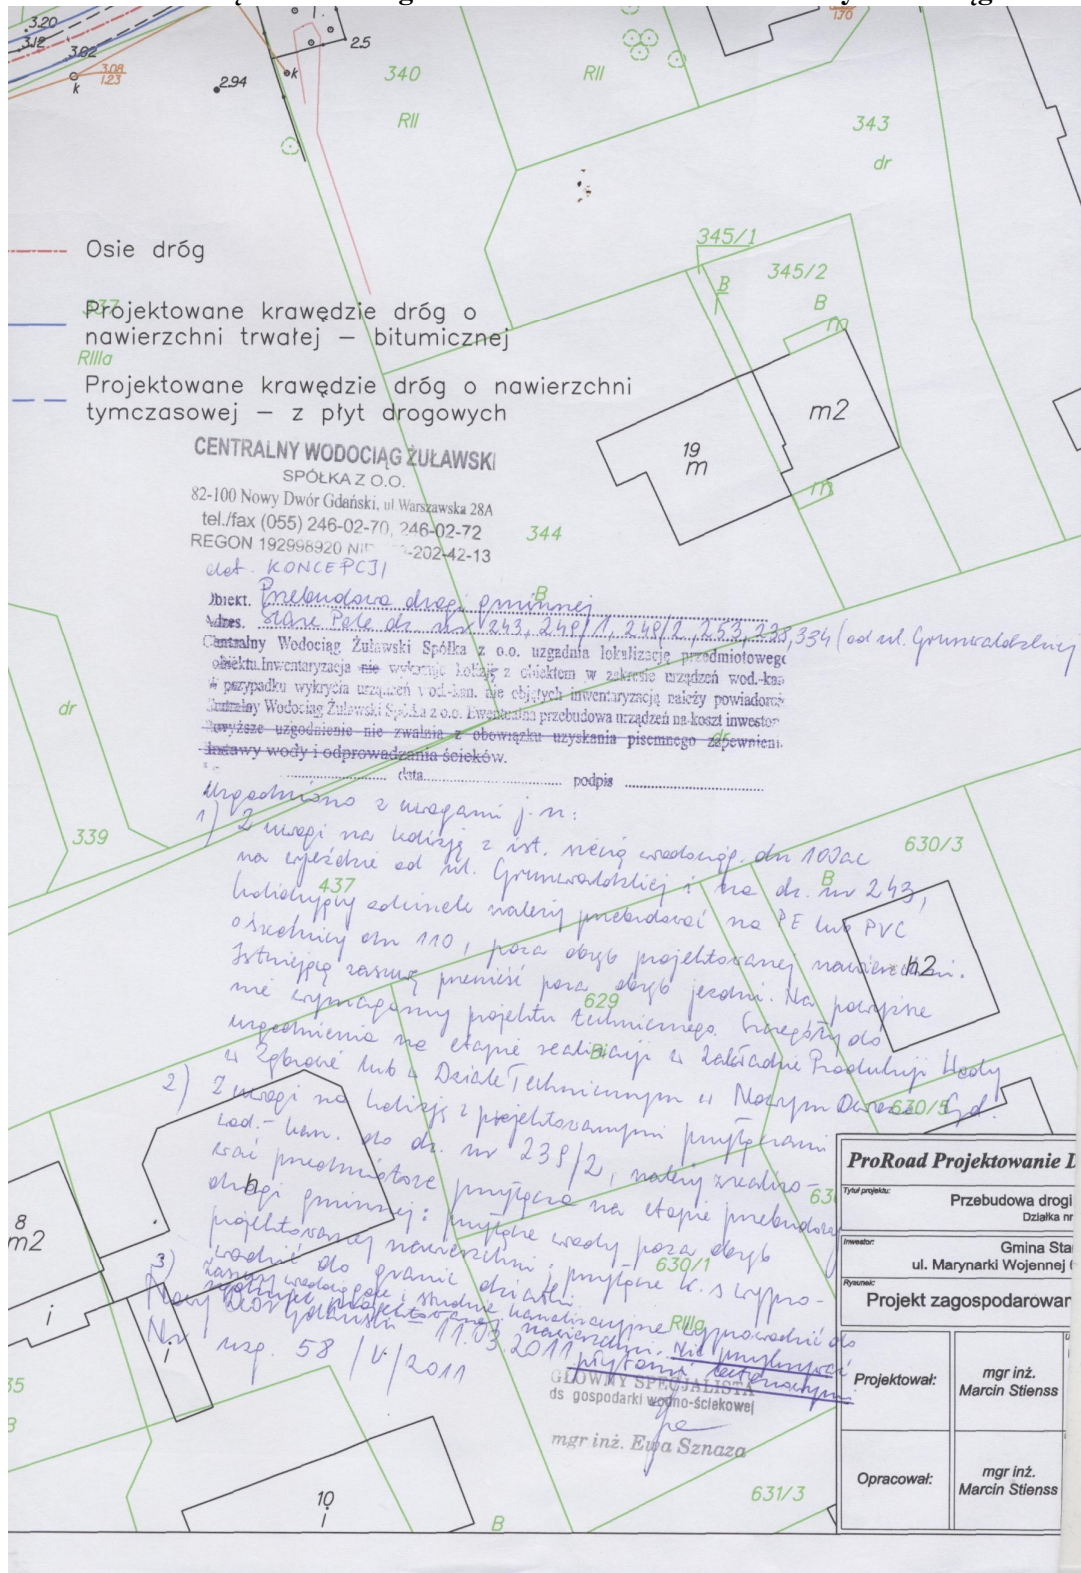 3.20
3.12
3.02
3.08
1.23
k
2.94
k
25
340
RII
RII
1.70
343
dr
345/1
345/2
B
B
m
m2
19
m
m
Osie dróg
337
Projektowane krawędzie dróg o
nawierzchni trwałej – bitumicznej
RIIIa
Projektowane krawędzie dróg o nawierzchni
tymczasowej – z płyt drogowych
CENTRALNY WODOCIĄG ŻUŁAWSKI
SPÓŁKA Z O.O.
82-100 Nowy Dwór Gdański, ul.Warszawska 28A
tel./fax (055) 246-02-70, 246-02-72
REGON 192998920 NIP -202-42-13
344
dot. KONCEPCJI
B
Obiekt. Przebudowa drogi gminnej
Adres. Stare Pole dz. nr 243, 249/1, 249/2, 253, 334 (od ul. Grunwaldzkiej
Centralny Wodociąg Żuławski Spółka z o.o. uzgadnia lokalizację przedmiotowego
obiektu.Inwentaryzacja nie wykazuje kolizję z obiektem w zakresie urządzeń wod.-kan
W przypadku wykrycia urządzeń wod.-kan. nie objętych inwentaryzacją należy powiadomić
Centralny Wodociąg Żuławski Spółka z o.o. Ewentualna przebudowa urządzeń na koszt inwestor
Powyższe uzgodnienie nie zwalnia z obowiązku uzyskania pisemnego zapewnieni
dostawy wody i odprowadzania ścieków.
dr
dr
data podpis
339
Uzgodniono z uwagami j.n:
1) Z uwagi na kolizję z ist. siecią wodociąg. dn 100ac
na wjeździe od ul. Grunwaldzkiej i na dz. nr 243,
630/3
B
437
kolidujący odcinek należy przebudować na PE lub PVC
o średnicy dn 110, poza obręb projektowanej nawierzchni.
h2
Istniejącą zasuwę przenieść poza obręb jezdni. Na powyższe
629
nie wymagamy projektu technicznego. Szczegóły do
uzgodnienia na etapie realizacji w Zakładzie Produkcji Wody
w Ząbrowie lub w Dziale Technicznym w Nowym Dworze Gd.
630/5
2) Z uwagi na kolizję z projektowanymi przyłączami
wod.-kan. do dz. nr 239/2, należy zrealizo-
wać przedmiotowe przyłącza na etapie przebudowy
h
drogi gminnej: przyłącze wody poza obręb
projektowanej nawierzchni, przyłącze k.s wypro-
wadzić do granic działki.
630/1
3) Zasuwy wodociągowe i studnie kanalizacyjne wyprowadzić do
projektowanej nawierzchni. Nie przykrywać
płytami betonowymi.
RIIIa
Nowy Dwór Gdański 11.03.2011
Nr uzg. 58/V/2011
GŁÓWNY SPECJALISTA
ds gospodarki wodno-ściekowej
mgr inż. Ewa Sznaza
8
m2
i
i
35
B
10
i
B
631/3
ProRoad Projektowanie
Tytuł projektu:
Przebudowa drogi
Działka nr
Inwestor:
Gmina Sta
ul. Marynarki Wojennej
Rysunek:
Projekt zagospodarowan
Projektował:
mgr inż.
Marcin Stienss
Opracował:
mgr inż.
Marcin Stienss